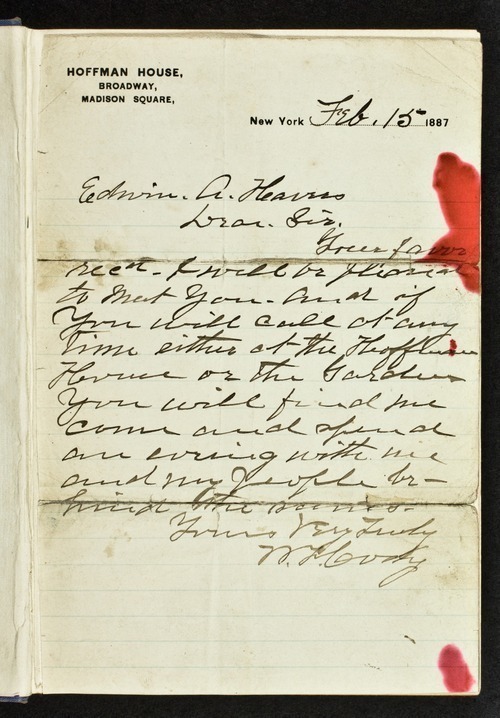 HOFFMAN HOUSE,
BROADWAY,
MADISON SQUARE,
New York Feb. 15 1887
Edwin. A.
Dear. Sir.
Your favor
recd. I will be pleased
to meet you. and if
you will call at any
time either at the Hoffman
House or the Garden
You will find me
come and spend
an evening with me
and my people be-
hind the scenes.
Yours Very Truly
W. F. Cody